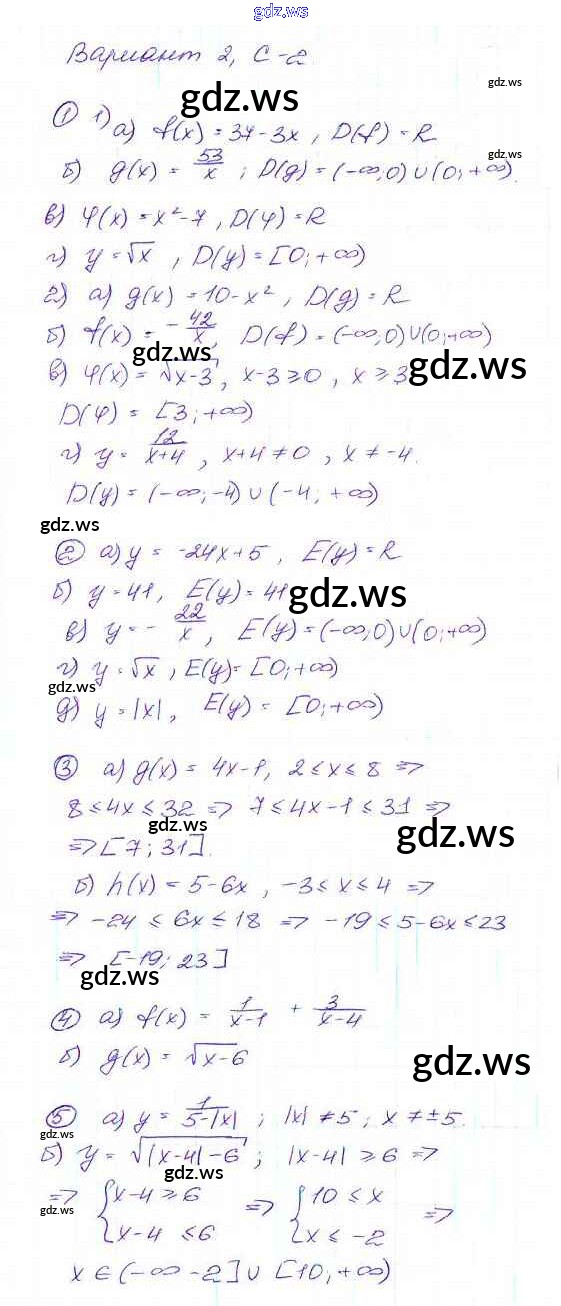 gdz.ws
Вариант 2, С-2
gdz.ws
gdz.ws
① 1) а) f(x) = 37-3x, D(f) = R
gdz.ws
б) g(x) = 53/x ; D(g) = (-∞;0) ∪ (0; +∞).
в) φ(x) = x²-7, D(φ) = R
г) y = √x, D(y) = [0; +∞)
2) а) g(x) = 10-x², D(g) = R
б) f(x) = -42/x, D(f) = (-∞;0) ∪ (0; +∞)
gdz.ws
gdz.ws
в) φ(x) = √x-3, x-3 ≥ 0, x ≥ 3
D(φ) = [3; +∞)
г) y = 12/x+4, x+4 ≠ 0, x ≠ -4.
D(y) = (-∞; -4) ∪ (-4; +∞)
gdz.ws
② а) y = -24x+5, E(y) = R
б) y = 41, E(y) = 41
gdz.ws
в) y = -22/x, E(y) = (-∞;0) ∪ (0; +∞)
г) y = √x, E(y) = [0; +∞)
gdz.ws
д) y = |x|, E(y) = [0; +∞)
③ а) g(x) = 4x-1, 2 ≤ x ≤ 8 =>
8 ≤ 4x ≤ 32 => 7 ≤ 4x-1 ≤ 31 =>
gdz.ws
gdz.ws
=> [7; 31].
б) h(x) = 5-6x, -3 ≤ x ≤ 4 =>
=> -24 ≤ 6x ≤ 18 => -19 ≤ 5-6x ≤ 23
=> [-19; 23]
gdz.ws
④ а) f(x) = 1/x-1 + 3/x-4
б) g(x) = √x-6
gdz.ws
⑤ а) y = 1/5-|x| ; |x| ≠ 5; x ≠ ±5.
gdz.ws
б) y = √|x-4|-6 ; |x-4| ≥ 6 =>
gdz.ws
=> { x-4 ≥ 6 => { 10 ≤ x =>
gdz.ws
x-4 ≤ 6 x ≤ -2
x ∈ (-∞ -2] ∪ [10; +∞)